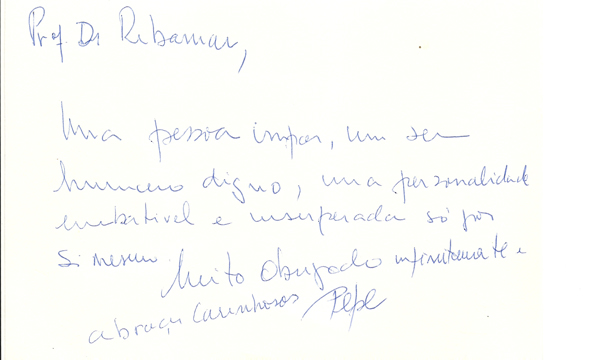 Prof. Dr Ribamar,
Uma pessoa impar, um ser
humano digno, uma personalidade
imbatível e insuperada só por
si mesmo.
Muito Obrigado infinitamente e
abraços carinhosos Pepe